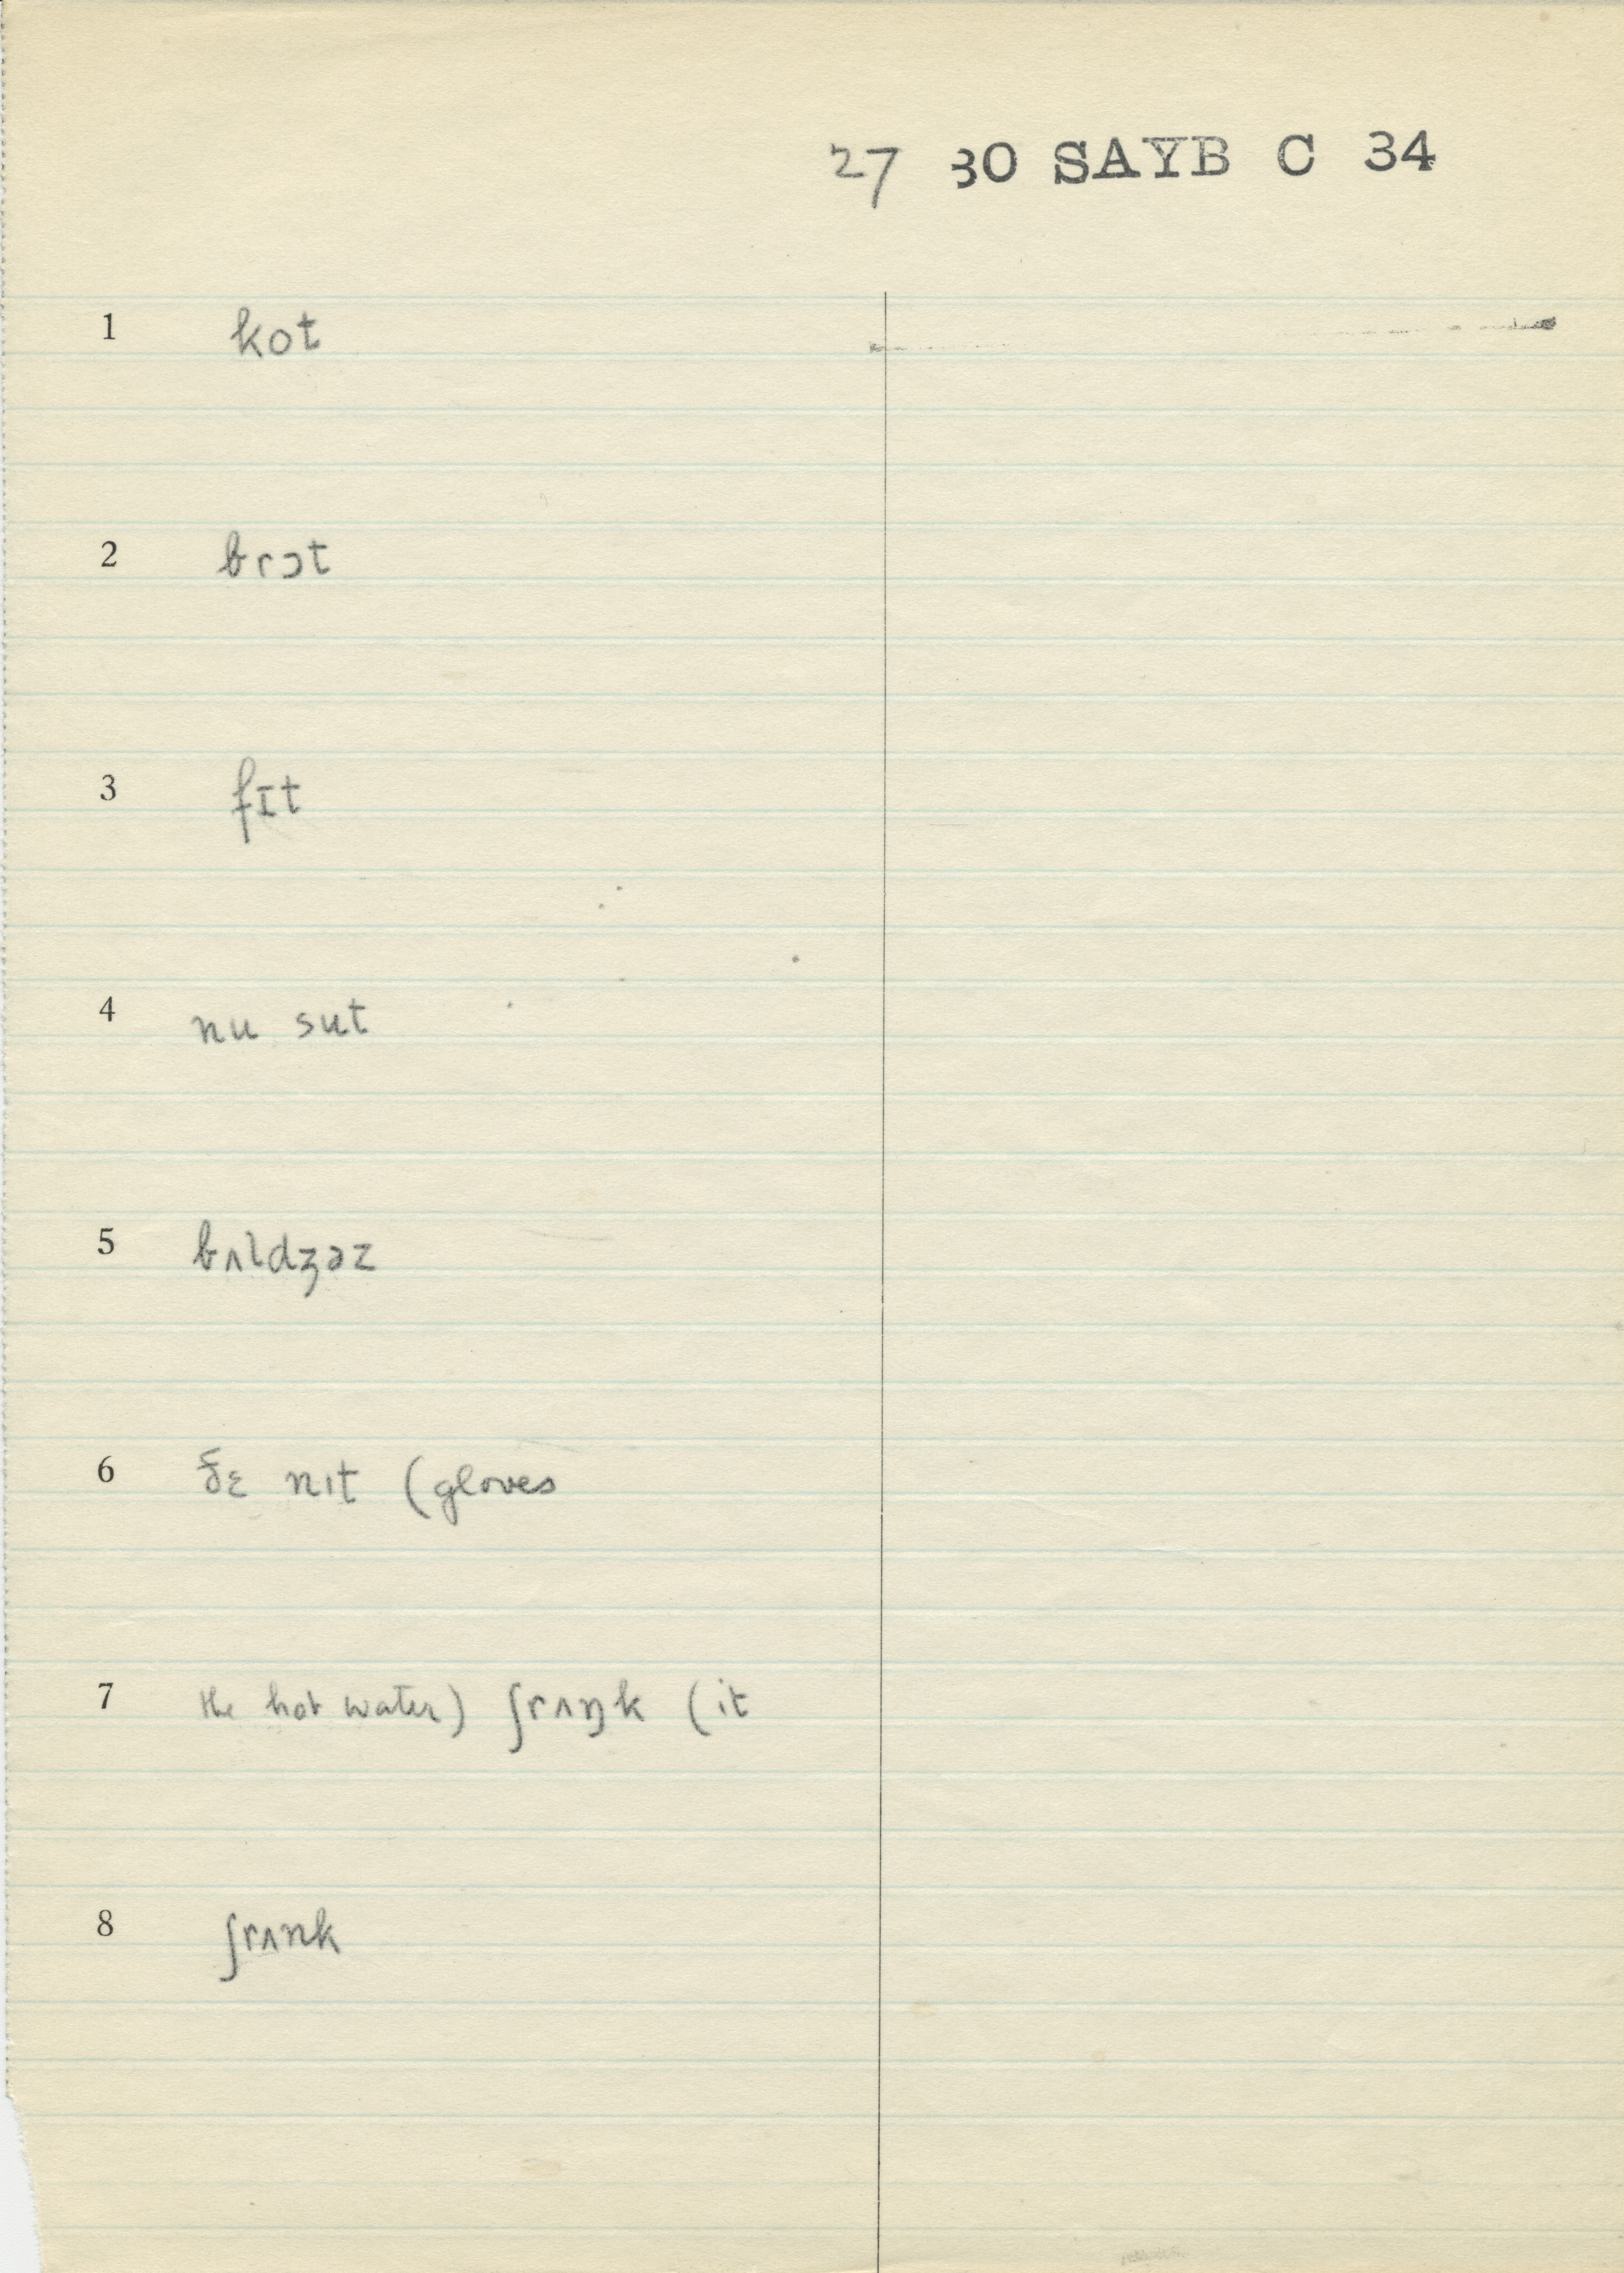 27 30 SAYB C 34
1 kot
2 brɔt
3 fɪt
4 nu sut
5 bʌldʒəz
6 ðɛ nɪt (gloves
7 the hot water) ʃrʌŋk (it
8 ʃrʌnk